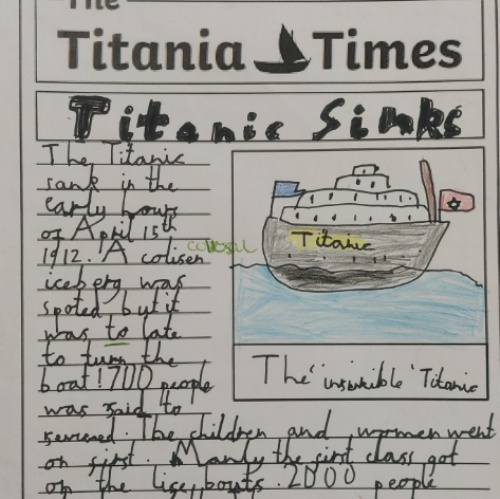 The
Titania Times
Titanic Sinks
The Titanic
sank in the
early hours
of April 15th
1912. A colisen
colossal
iceberg was
spoted but it
was to late
to turn the
boat! 700 people
was said to
The children and women went
on first. Manly the first class got
on the life boats. 2000 people
Titanic
The 'insinkible' Titanic